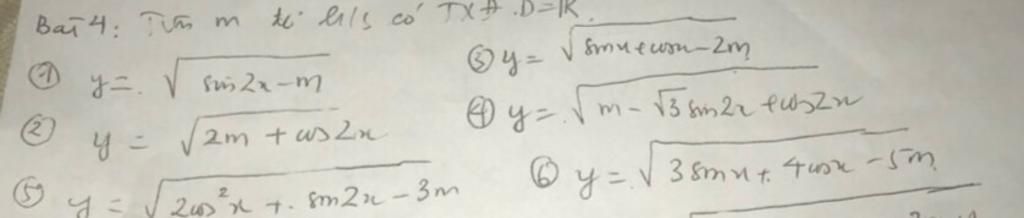 Bài 4: Tìm m để h/s có TXĐ. D=ℝ.
① y = √(sin2x - m)
② y = √(2m + cos2x)
③ y = √(sinx + cosx - 2m)
④ y = √(m - √3 sin2x + cos2x)
⑤ y = √(2cos²x + sin2x - 3m)
⑥ y = √(3sinx + 4cosx - 5m)